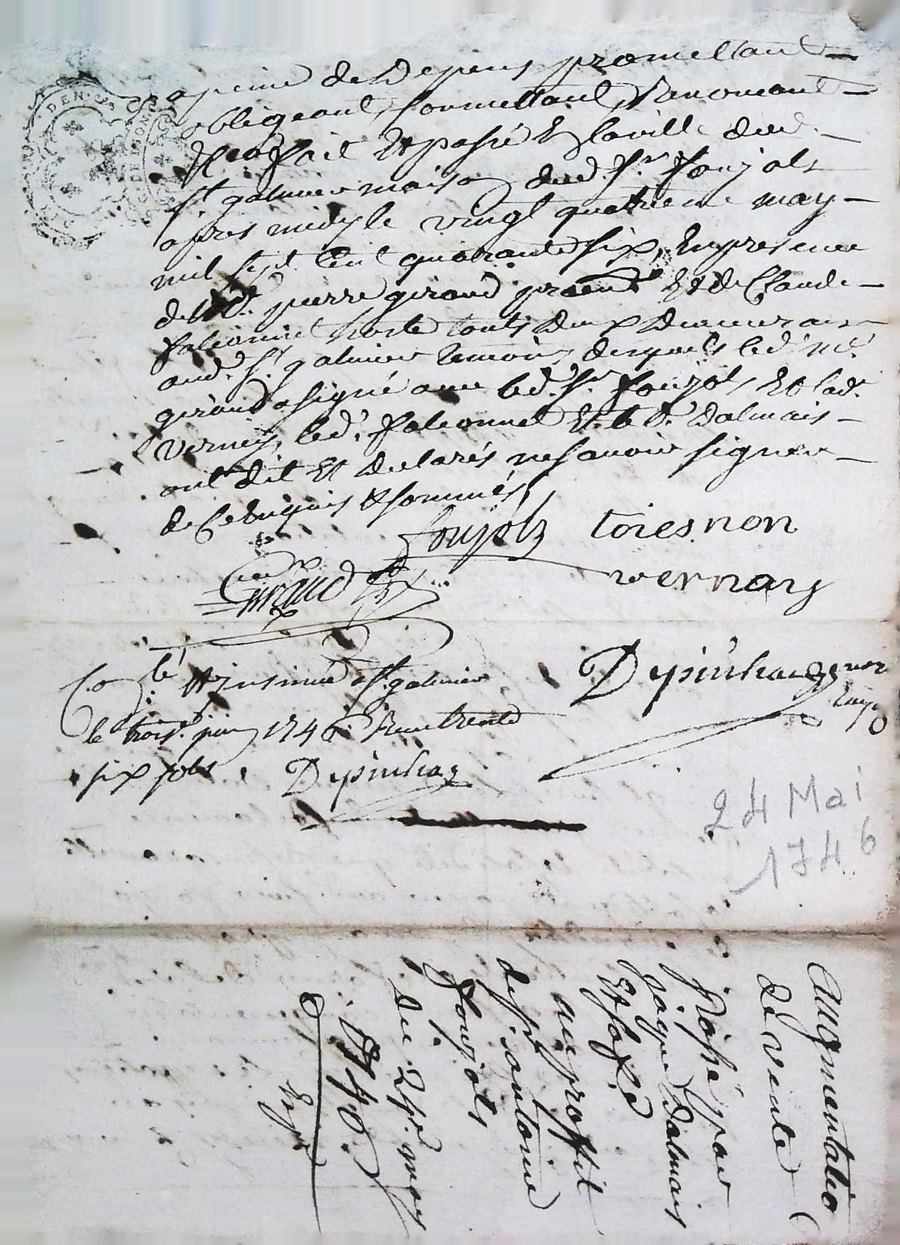 a peine de depens promettant
obligeant, soumettant, Renoncant
fait Et passé En la ville dud.
St galmier maison dud Sr. Foujols
apres midy le vingt quatrieme may
mil sept Cent quarante six, En presence
de Me. pierre giraud Et de Claude
falconnet hoste touts deux demeurants
aud. St. galmier temoins desquels led. Me.
giraud a signé avec led. Sr Foujols, Et lad.
verney, led. falconnet Et le d. Dalmais
ont dit Et declarés ne savoir signer
de Ce Enquis & sommés,
foujols toiesnon
Giraud vernay
Colé. Et insinué a St. galmier
Depinhac
le trois. juin 1746 Receu trente
six sols. Depinhac
24 Mai
1746
Augmentatio
de vente
passé par
Dalmais
Et sa fe
au proffit
de Sr. antoine
foujols
du 24e. may
1746.